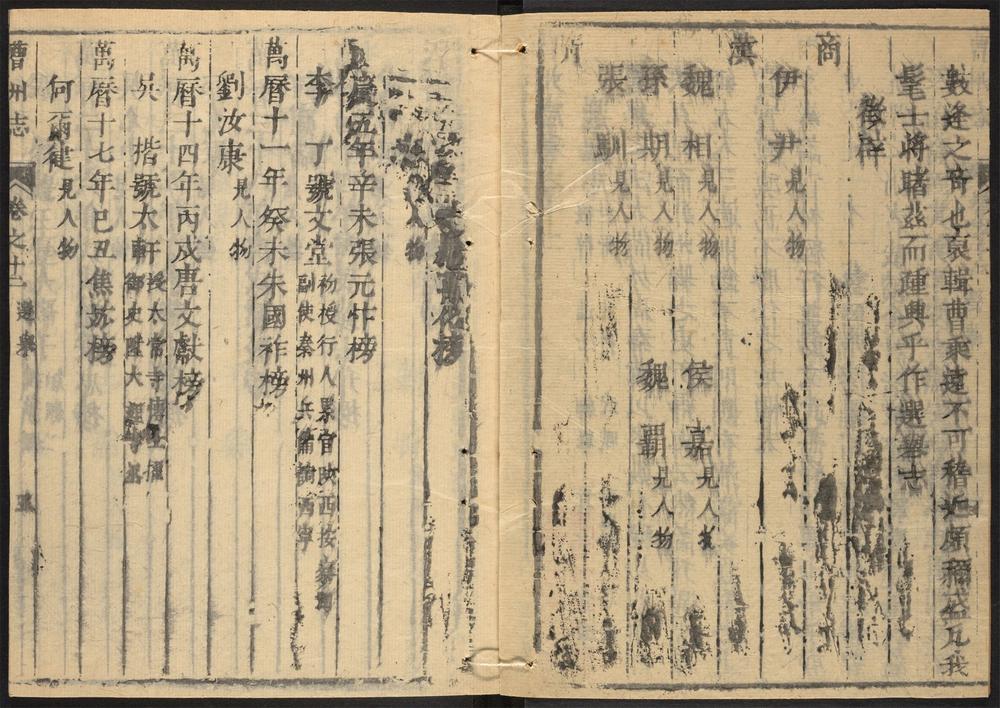 數逢之奇也裒輯曹乘遠不可稽近頗稱盛凡我
髦士將睹茲而踵興乎作選舉志
徵辟
商
伊尹見人物
漢
魏相見人物 侯嘉見人物
孫期見人物 魏霸見人物
張馴見人物
榜
人物
慶五年辛未張元忭榜
李 丁號文堂初授行人累官陝西按察司
副使秦州兵備調西寧
萬曆十一年癸未朱國祚榜
劉汝康見人物
萬曆十四年丙戌唐文獻榜
吳 楷號太軒授太常寺博士擢
御史陞大理寺丞
萬曆十七年己丑焦竑榜
何爾健見人物
曹州志 卷之十二 選舉 五